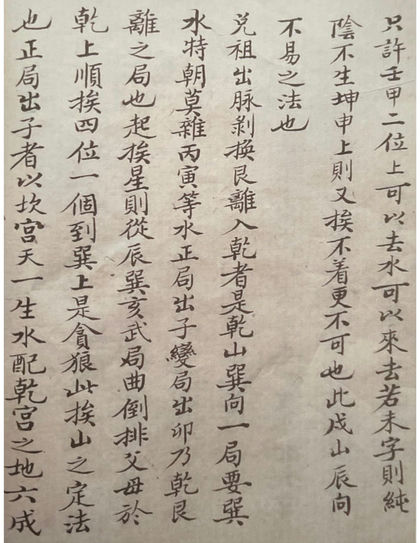 只許壬甲二位上可以去水可以來去若未字則純
陰不生坤申上則又挨不着更不可也此戌山辰向
不易之法也
兌祖出脉剝換艮離入乾者是乾山巽向一局要巽
水特朝莫雜丙寅等水正局出子變局出卯乃乾艮
離之局也起挨星則從辰巽亥武局曲倒排父母於
乾上順挨四位一個到巽上是貪狼此挨山之定法
也正局出子者以坎宮天一生水配乾宮之地六成